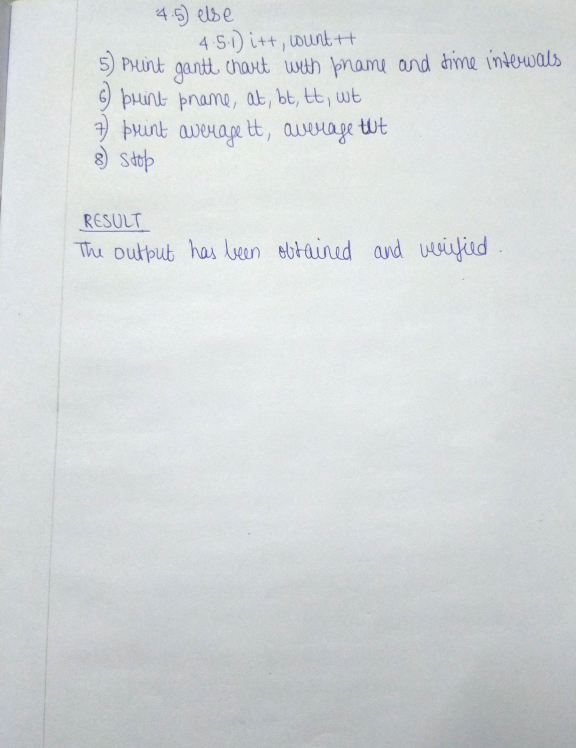 4.5) else
4.5.1) i++, count++
5) Print gantt chart with pname and time intervals
6) print pname, at, bt, tt, wt
7) print average tt, average wt
8) Stop
RESULT
The output has been obtained and verified.